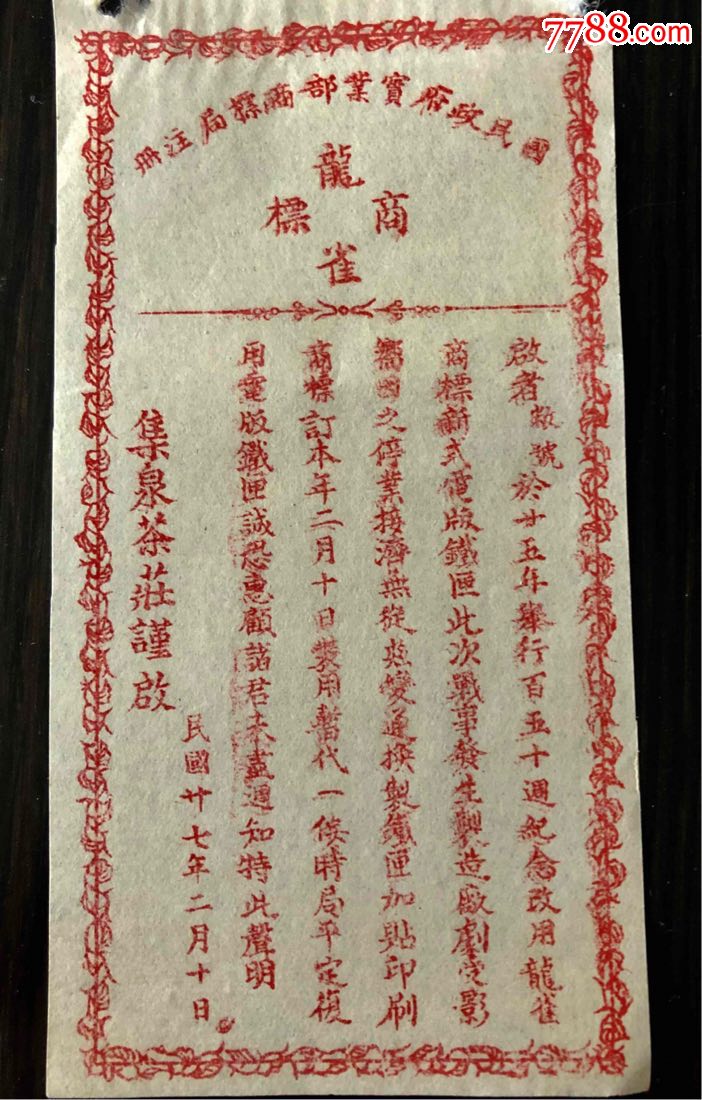 7788.com
國民政府實業部商標局注冊
龍
商標
雀
啟者敝號於廿五年舉行百五十週紀念改用龍雀
商標新式電版鐵匣此次戰事發生製造廠劇受影
響因之停業接濟無從茲變通撰製鐵匣加貼印刷
商標訂本年二月十日裝用暫代一俟時局平定復
用電版鐵匣誠恐惠顧諸君未盡週知特此聲明
集泉茶莊謹啟
民國廿七年二月十日